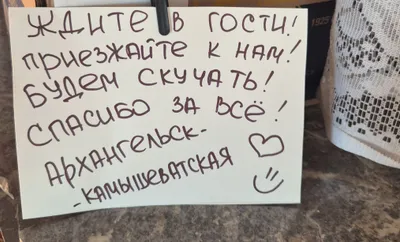 ЖДИТЕ В ГОСТИ!
ПРИЕЗЖАЙТЕ К НАМ!
БУДЕМ СКУЧАТЬ!
СПАСИБО ЗА ВСЁ!
АРХАНГЕЛЬСК-
-КАМЫШЕВАТСКАЯ